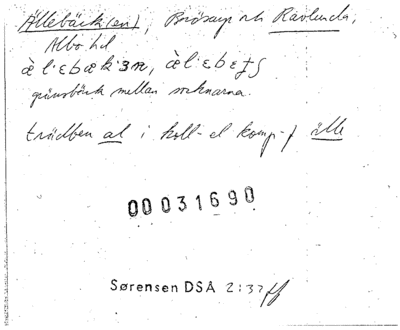 Ällebäck(en), Brösarp och Ravlunda,
Albo hd
gränsbäck mellan socknarna.
trädben al i koll- el komp-f älle
00031690
Sørensen DSÅ 2:37 ff